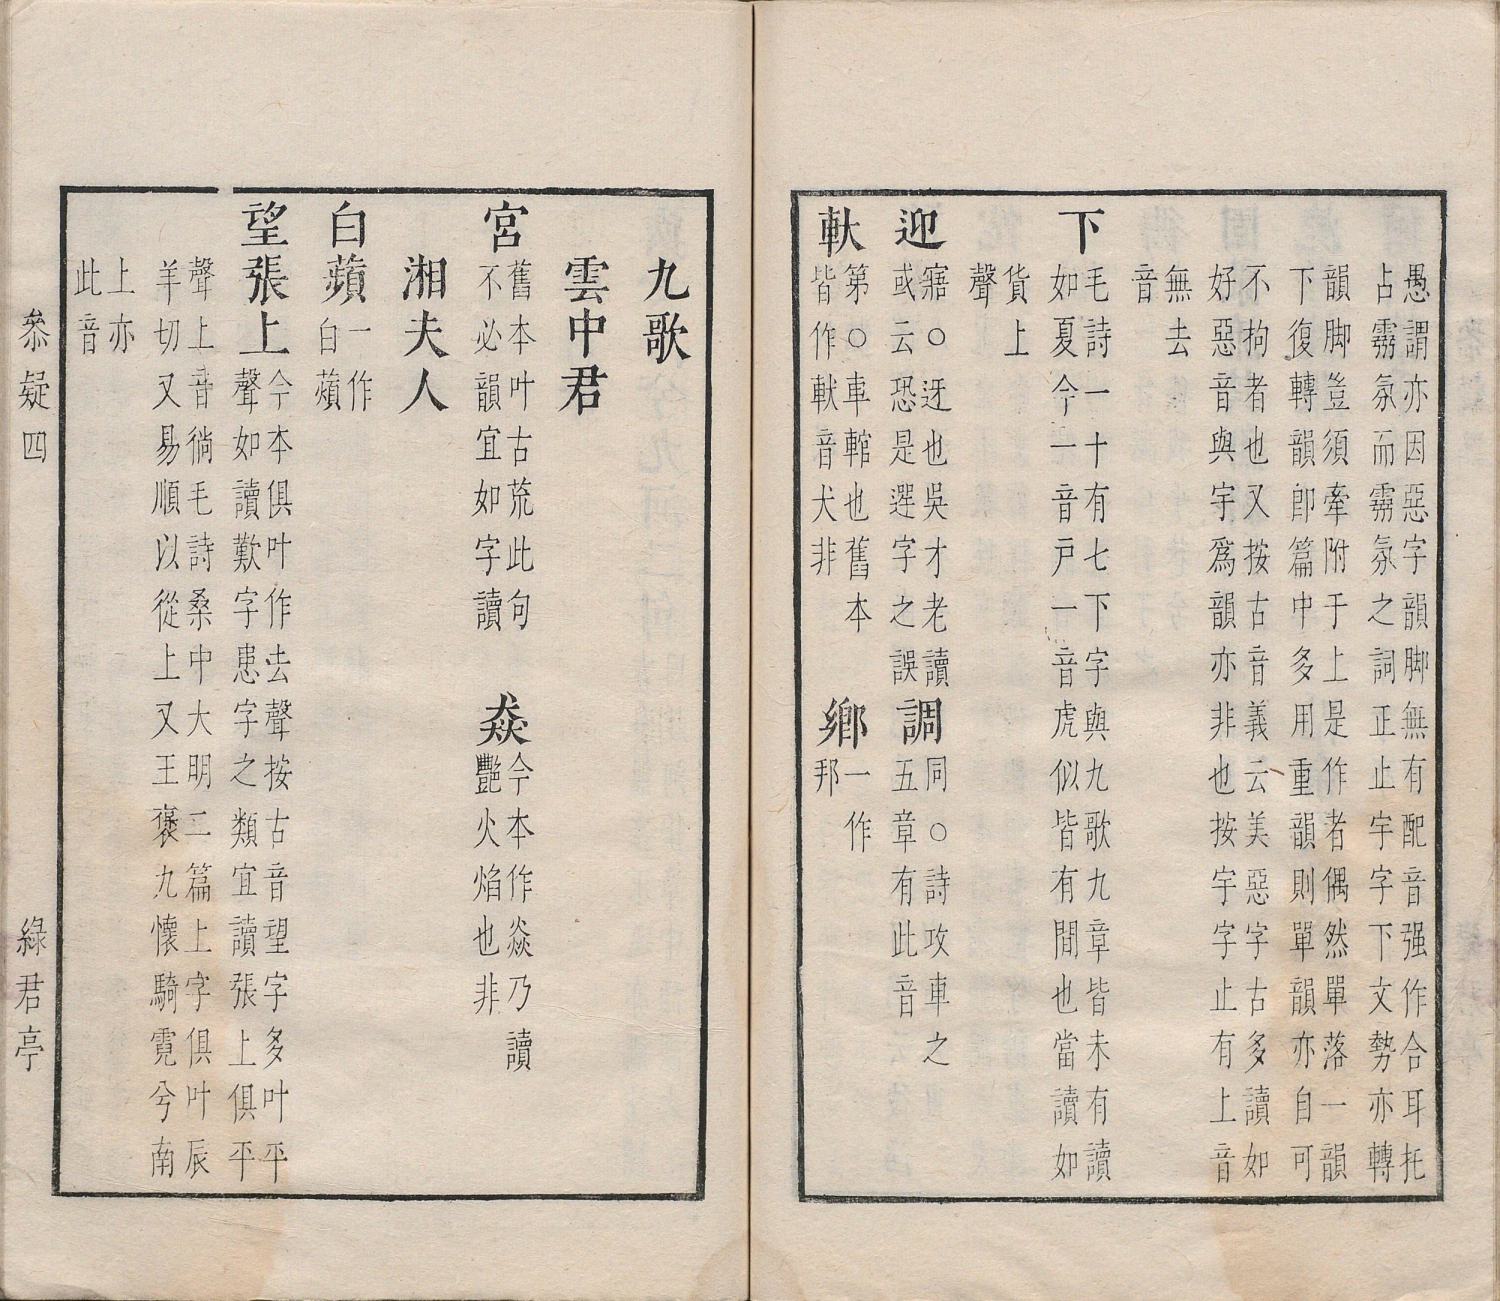 愚謂亦因惡字韻脚無有配音强作合耳托
占霧氛而霧氛之詞正止宇字下文勢亦轉
韻脚豈須牽附于上是作者偶然單落一韻
下復轉韻卽篇中多用重韻則單韻亦自可
不拘者也又按古音義云美惡字古多讀如
好惡音與宇爲韻亦非也按宇字止有上音
無去
音
下
毛詩一十有七下字與九歌九章皆未有讀
如夏今一音戸一音虎似皆有閒也當讀如
貨上
聲
迎
寤○迓也吳才老讀
或云恐是選字之誤
調
同○詩攻車之
五章有此音
軑
第○車輨也舊本
皆作軑音犬非
鄉
一作
邦
九歌
雲中君
宮
舊本叶古荒此句
不必韻宜如字讀
猋
今本作焱乃讀
艷火焰也非
湘夫人
白蘋
一作
白薠
望張上
今本俱叶作去聲按古音望字多叶平
聲如讀歎字患字之類宜讀張上俱平
聲上音徜毛詩桑中大明二篇上字俱叶辰
羊切又易順以從上又王褒九懷騎霓兮南
上亦
此音
叅疑 四
綠君亭